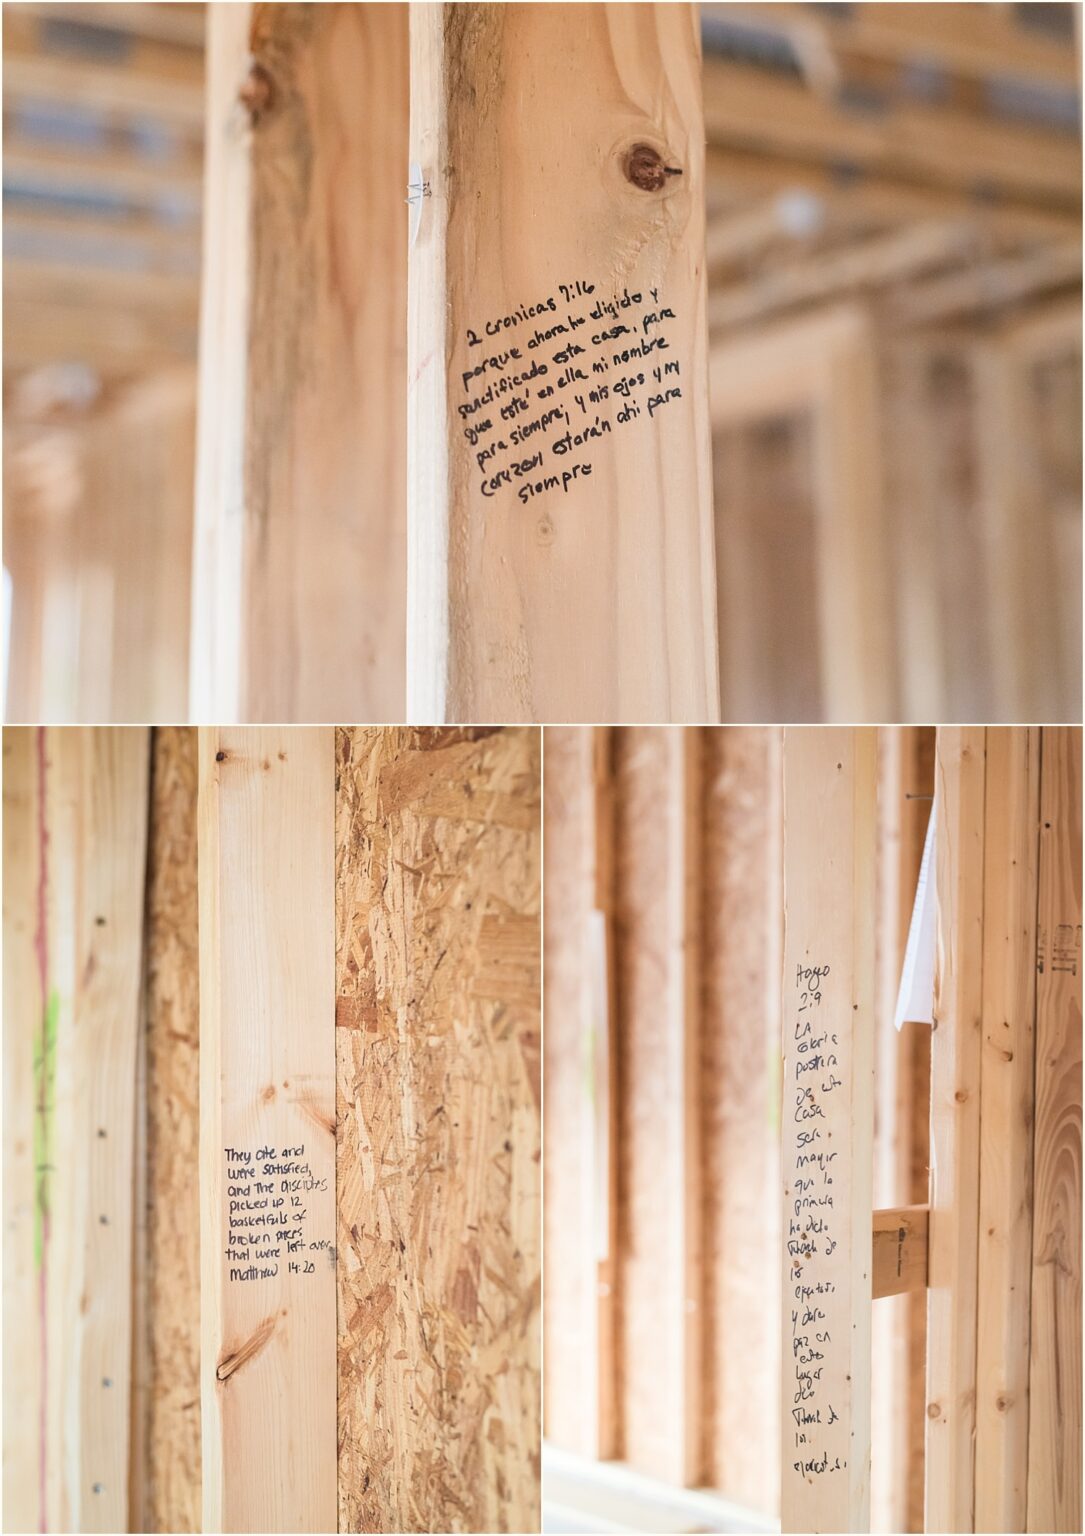 2 Cronicas 7:16
porque ahora he eligido y
sanctificado esta casa, para
que esté en ella mi nombre
para siempre; y mis ojos y my
corazon estarán ahi para
siempre
They ate and
were satisfied,
and the disciples
picked up 12
basketfuls of
broken pieces
that were left over
Matthew 14:20
Hageo
2:9
LA
Gloria
postrera
De esta
Casa
sera
mayor
que la
primera
ha dicho
de
los
y dare
paz en
este
lugar
dice
de
los